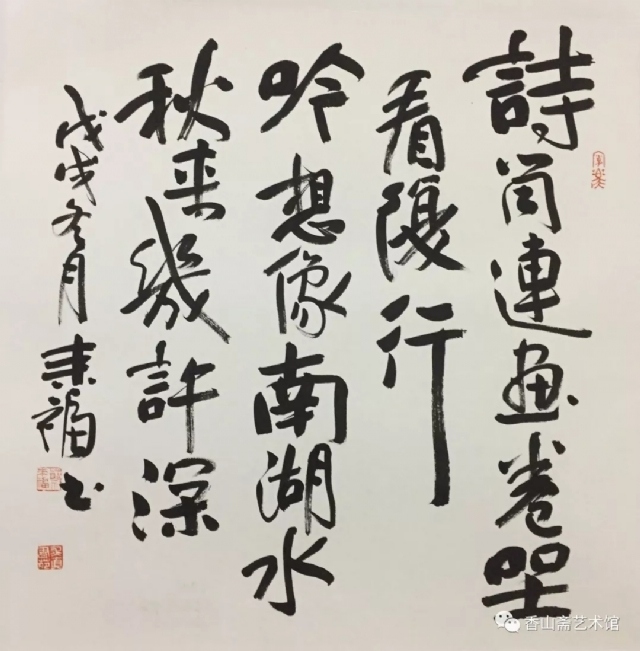 詩筒連画卷坐
看復行
吟想像南湖水
秋来幾許深
戊戌冬月 福书
香山斋艺术馆